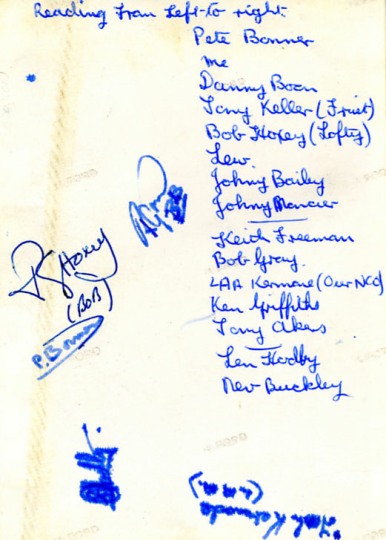 Reading from Left to right.
Pete Bonner
me
Danny Boon
Tony Keller (Fruit)
Bob Hoxey (Lofty)
Lew.
Johny Bailey
Johny Mancier
Keith Freeman
Bob Gray.
LAA Kermode (Our NCO)
Ken Griffiths
Tony Akers
Len Hodby
Nev Buckley
R Hoxey
(BOB)
P. Bonner